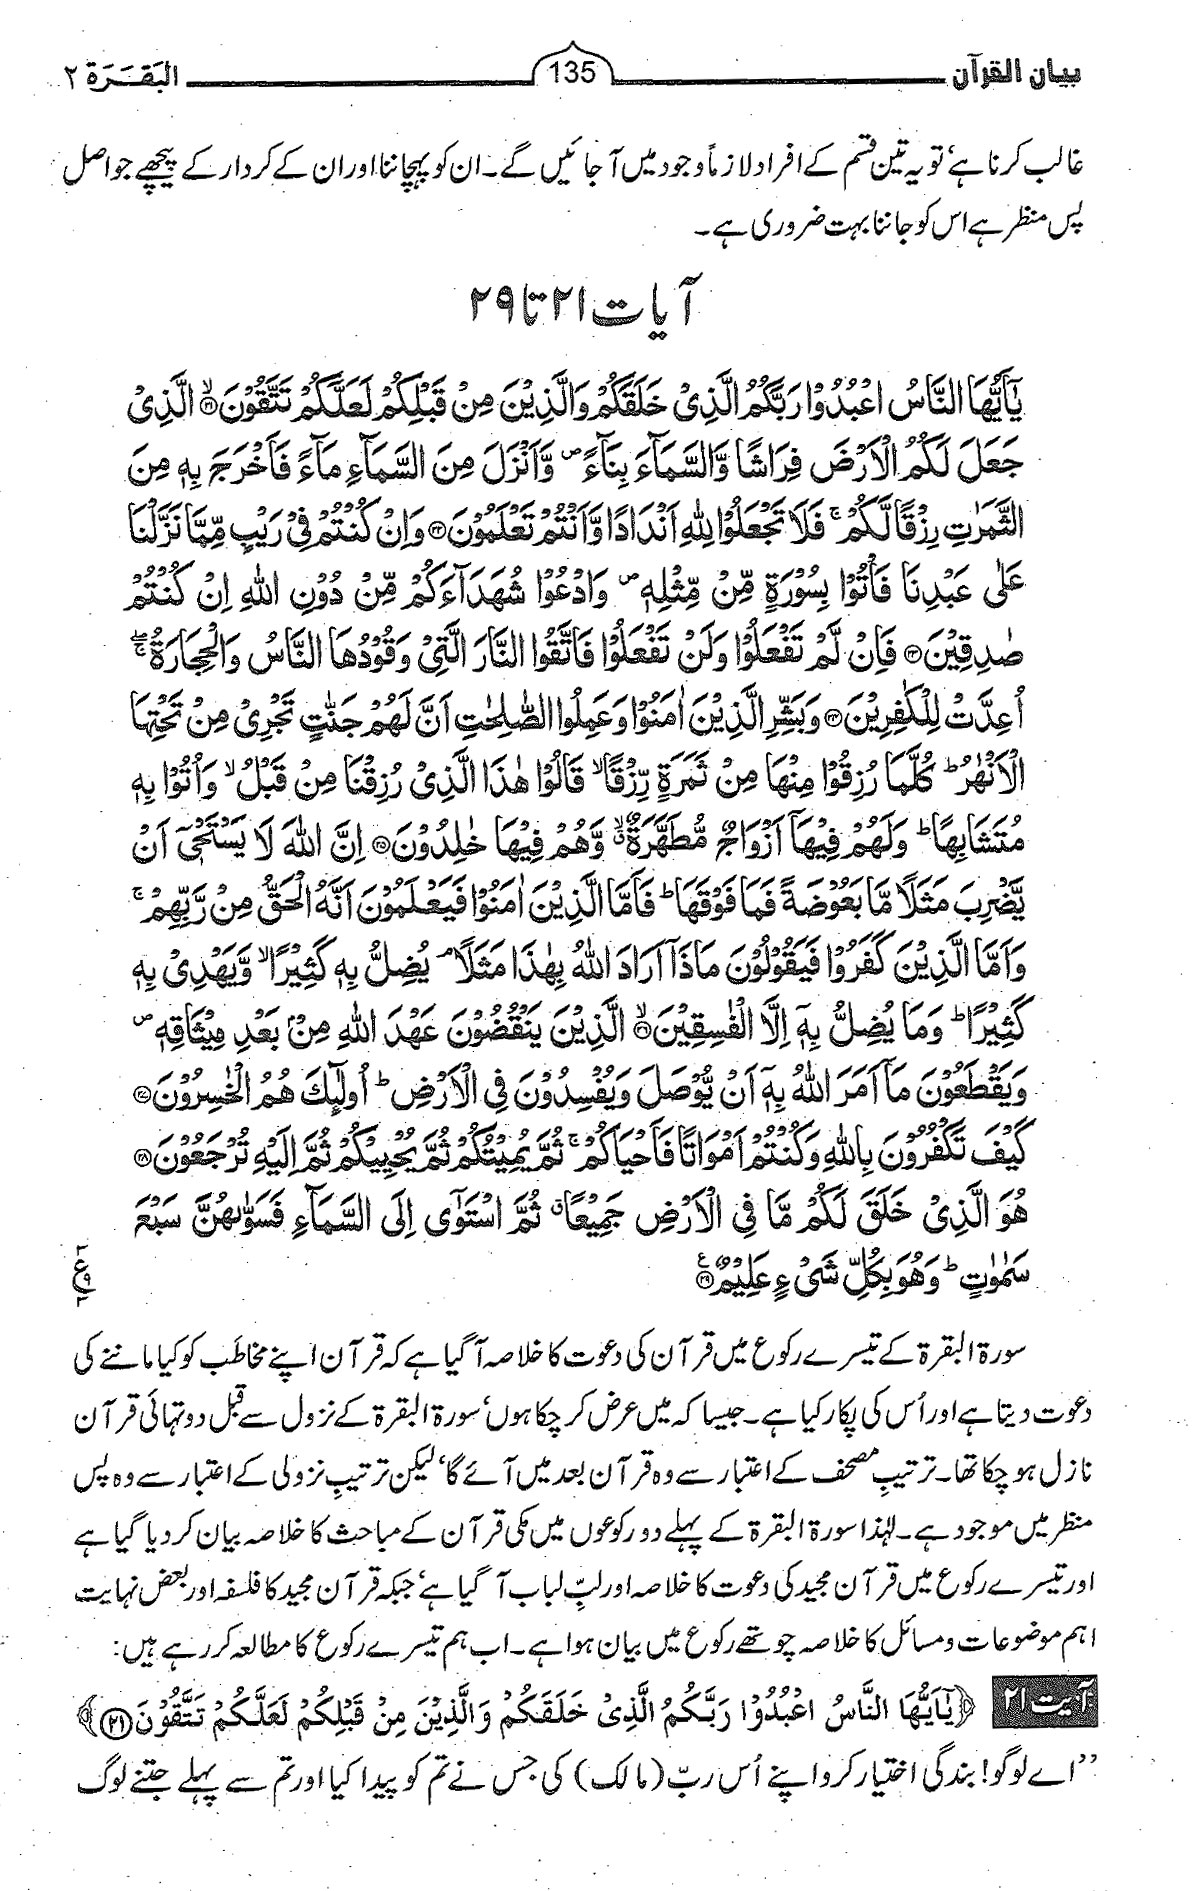 بیان القرآن 135 البَقَرَة ۲
غالب کرنا ہے، تو یہ تین قسم کے افراد لازماً وجود میں آ جائیں گے۔ ان کو پہچاننا اور ان کے کردار کے پیچھے جو اصل
پس منظر ہے اس کو جاننا بہت ضروری ہے۔
آیات ۲۱ تا ۲۹
يٰۤاَيُّهَا النَّاسُ اعْبُدُوْا رَبَّكُمُ الَّذِيْ خَلَقَكُمْ وَالَّذِيْنَ مِنْ قَبْلِكُمْ لَعَلَّكُمْ تَتَّقُوْنَ ۙ﴿۲۱﴾ الَّذِيْ
جَعَلَ لَكُمُ الْاَرْضَ فِرَاشًا وَّالسَّمَآءَ بِنَآءً ۪ وَّاَنْزَلَ مِنَ السَّمَآءِ مَآءً فَاَخْرَجَ بِهٖ مِنَ
الثَّمَرٰتِ رِزْقًا لَّكُمْ ۚ فَلَا تَجْعَلُوْا لِلّٰهِ اَنْدَادًا وَّاَنْتُمْ تَعْلَمُوْنَ ﴿۲۲﴾ وَاِنْ كُنْتُمْ فِيْ رَيْبٍ مِّمَّا نَزَّلْنَا
عَلٰى عَبْدِنَا فَاْتُوْا بِسُوْرَةٍ مِّنْ مِّثْلِهٖ ۪ وَادْعُوْا شُهَدَآءَكُمْ مِّنْ دُوْنِ اللّٰهِ اِنْ كُنْتُمْ
صٰدِقِيْنَ ﴿۲۳﴾ فَاِنْ لَّمْ تَفْعَلُوْا وَلَنْ تَفْعَلُوْا فَاتَّقُوا النَّارَ الَّتِيْ وَقُوْدُهَا النَّاسُ وَالْحِجَارَةُ ۚۖ
اُعِدَّتْ لِلْكٰفِرِيْنَ ﴿۲۴﴾ وَبَشِّرِ الَّذِيْنَ اٰمَنُوْا وَعَمِلُوا الصّٰلِحٰتِ اَنَّ لَهُمْ جَنّٰتٍ تَجْرِيْ مِنْ تَحْتِهَا
الْاَنْهٰرُ ؕ كُلَّمَا رُزِقُوْا مِنْهَا مِنْ ثَمَرَةٍ رِّزْقًا ۙ قَالُوْا هٰذَا الَّذِيْ رُزِقْنَا مِنْ قَبْلُ ۙ وَاُتُوْا بِهٖ
مُتَشَابِهًا ؕ وَلَهُمْ فِيْهَاۤ اَزْوَاجٌ مُّطَهَّرَةٌ ۙۗ وَّهُمْ فِيْهَا خٰلِدُوْنَ ﴿۲۵﴾ اِنَّ اللّٰهَ لَا يَسْتَحْيٖۤ اَنْ
يَّضْرِبَ مَثَلًا مَّا بَعُوْضَةً فَمَا فَوْقَهَا ؕ فَاَمَّا الَّذِيْنَ اٰمَنُوْا فَيَعْلَمُوْنَ اَنَّهُ الْحَقُّ مِنْ رَّبِّهِمْ ۚ
وَاَمَّا الَّذِيْنَ كَفَرُوْا فَيَقُوْلُوْنَ مَاذَاۤ اَرَادَ اللّٰهُ بِهٰذَا مَثَلًا ۘ يُضِلُّ بِهٖ كَثِيْرًا ۙ وَّيَهْدِيْ بِهٖ
كَثِيْرًا ؕ وَمَا يُضِلُّ بِهٖۤ اِلَّا الْفٰسِقِيْنَ ۙ﴿۲۶﴾ الَّذِيْنَ يَنْقُضُوْنَ عَهْدَ اللّٰهِ مِنْۢ بَعْدِ مِيْثَاقِهٖ ۪
وَيَقْطَعُوْنَ مَاۤ اَمَرَ اللّٰهُ بِهٖۤ اَنْ يُّوْصَلَ وَيُفْسِدُوْنَ فِي الْاَرْضِ ؕ اُولٰٓئِكَ هُمُ الْخٰسِرُوْنَ ﴿۲۷﴾
كَيْفَ تَكْفُرُوْنَ بِاللّٰهِ وَكُنْتُمْ اَمْوَاتًا فَاَحْيَاكُمْ ۚ ثُمَّ يُمِيْتُكُمْ ثُمَّ يُحْيِيْكُمْ ثُمَّ اِلَيْهِ تُرْجَعُوْنَ ﴿۲۸﴾
هُوَ الَّذِيْ خَلَقَ لَكُمْ مَّا فِي الْاَرْضِ جَمِيْعًا ۗ ثُمَّ اسْتَوٰٓى اِلَى السَّمَآءِ فَسَوّٰىهُنَّ سَبْعَ
سَمٰوٰتٍ ؕ وَهُوَ بِكُلِّ شَيْءٍ عَلِيْمٌ ﴿۲۹﴾
سورۃ البقرۃ کے تیسرے رکوع میں قرآن کی دعوت کا خلاصہ آ گیا ہے کہ قرآن اپنے مخاطَب کو کیا ماننے کی
دعوت دیتا ہے اور اُس کی پکار کیا ہے۔ جیسا کہ میں عرض کر چکا ہوں، سورۃ البقرۃ کے نزول سے قبل دو تہائی قرآن
نازل ہو چکا تھا۔ ترتیبِ مصحف کے اعتبار سے وہ قرآن بعد میں آئے گا، لیکن ترتیبِ نزولی کے اعتبار سے وہ پس
منظر میں موجود ہے۔ لہٰذا سورۃ البقرۃ کے پہلے دو رکوعوں میں مکی قرآن کے مباحث کا خلاصہ بیان کر دیا گیا ہے
اور تیسرے رکوع میں قرآن مجید کی دعوت کا خلاصہ اور لبِّ لباب آ گیا ہے، جبکہ قرآن مجید کا فلسفہ اور بعض نہایت
اہم موضوعات و مسائل کا خلاصہ چوتھے رکوع میں بیان ہوا ہے۔ اب ہم تیسرے رکوع کا مطالعہ کر رہے ہیں:
آیت ۲۱ ﴿يٰۤاَيُّهَا النَّاسُ اعْبُدُوْا رَبَّكُمُ الَّذِيْ خَلَقَكُمْ وَالَّذِيْنَ مِنْ قَبْلِكُمْ لَعَلَّكُمْ تَتَّقُوْنَ (۲۱)﴾
”اے لوگو! بندگی اختیار کرو اپنے اُس ربّ (مالک) کی جس نے تم کو پیدا کیا اور تم سے پہلے جتنے لوگ